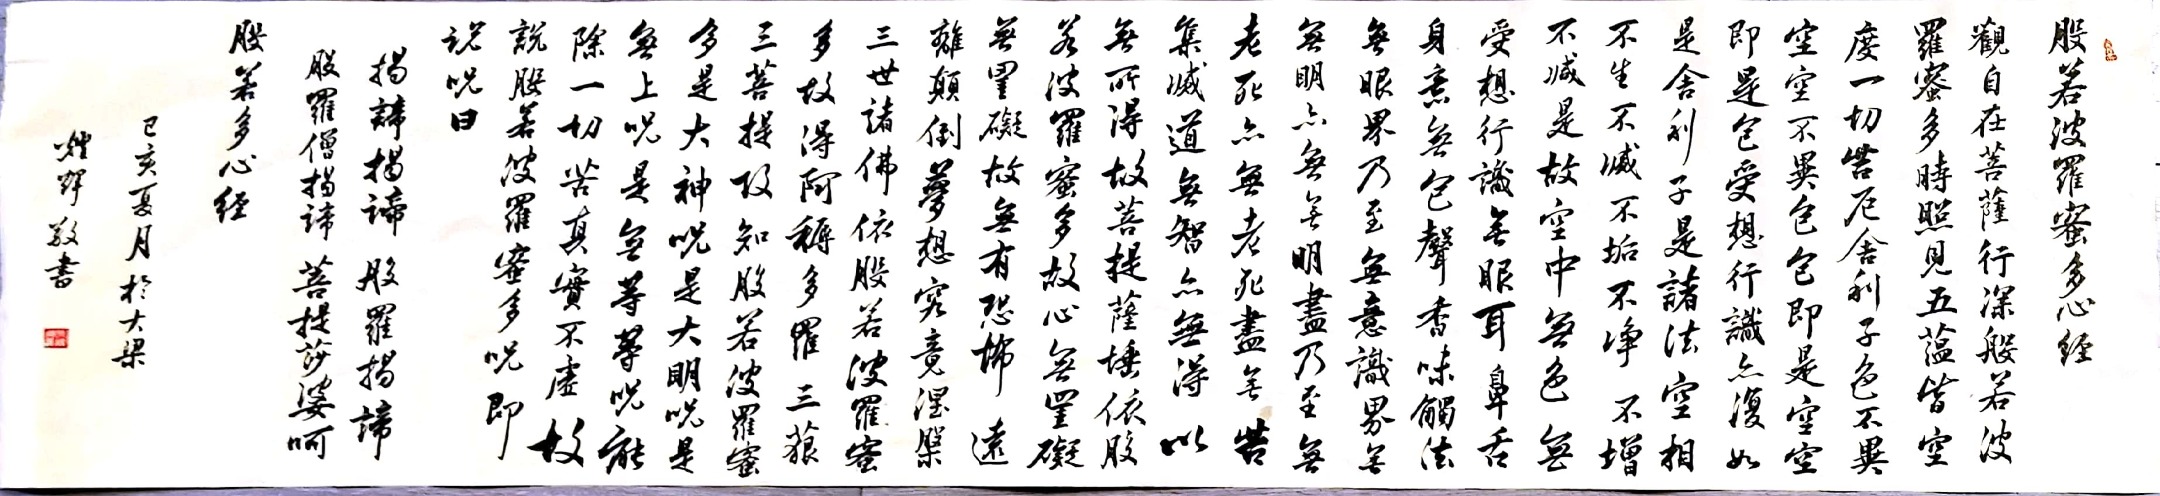 般若波羅蜜多心经
觀自在菩薩行深般若波
羅蜜多時照見五蕴皆空
度一切苦厄舍利子色不異
空空不異色色即是空空
即是色受想行識亦復如
是舍利子是諸法空相
不生不滅不垢不净不增
不减是故空中無色無
受想行識無眼耳鼻舌
身意無色聲香味觸法
無眼界乃至無意識界無
無明亦無無明盡乃至無
老死亦無老死盡無苦
集滅道無智亦無得以
無所得故菩提薩埵依般
若波羅蜜多故心無罣礙
無罣礙故無有恐怖遠
離顛倒夢想究竟涅槃
三世諸佛依般若波羅蜜
多故得阿耨多羅三藐
三菩提故知般若波羅蜜
多是大神呪是大明呪是
無上呪是無等等呪能
除一切苦真實不虛故
說般若波羅蜜多呪即
说呪曰
揭諦揭諦 般羅揭諦
般羅僧揭諦 菩提莎婆呵
般若多心经
己亥夏月於大梁
敬書